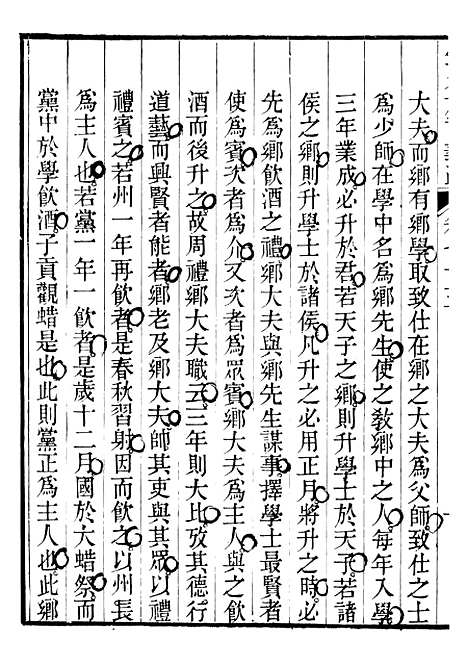 大夫而鄉有鄉學取致仕在鄉之大夫爲父師致仕之士
爲少師在學中名爲鄉先生使之敎鄉中之人每年入學
三年業成必升於君若天子之鄉則升學士於天子若諸
侯之鄉則升學士於諸侯凡升之必用正月將升之時必
先爲鄉飮酒之禮鄉大夫與鄉先生謀事擇學士最賢者
使爲賓次者爲介又次者爲眾賓鄉大夫爲主人與之飮
酒而後升之故周禮鄉大夫職云三年則大比攷其德行
道藝而興賢者能者鄉老及鄉大夫師其吏與其眾以禮
禮賓之若州一年再飮者是春秋習射因而飮之以州長
爲主人也若黨一年一飮者是歲十二月國於大蜡祭而
黨中於學飮酒子貢觀蜡是也此則黨正爲主人也此鄉